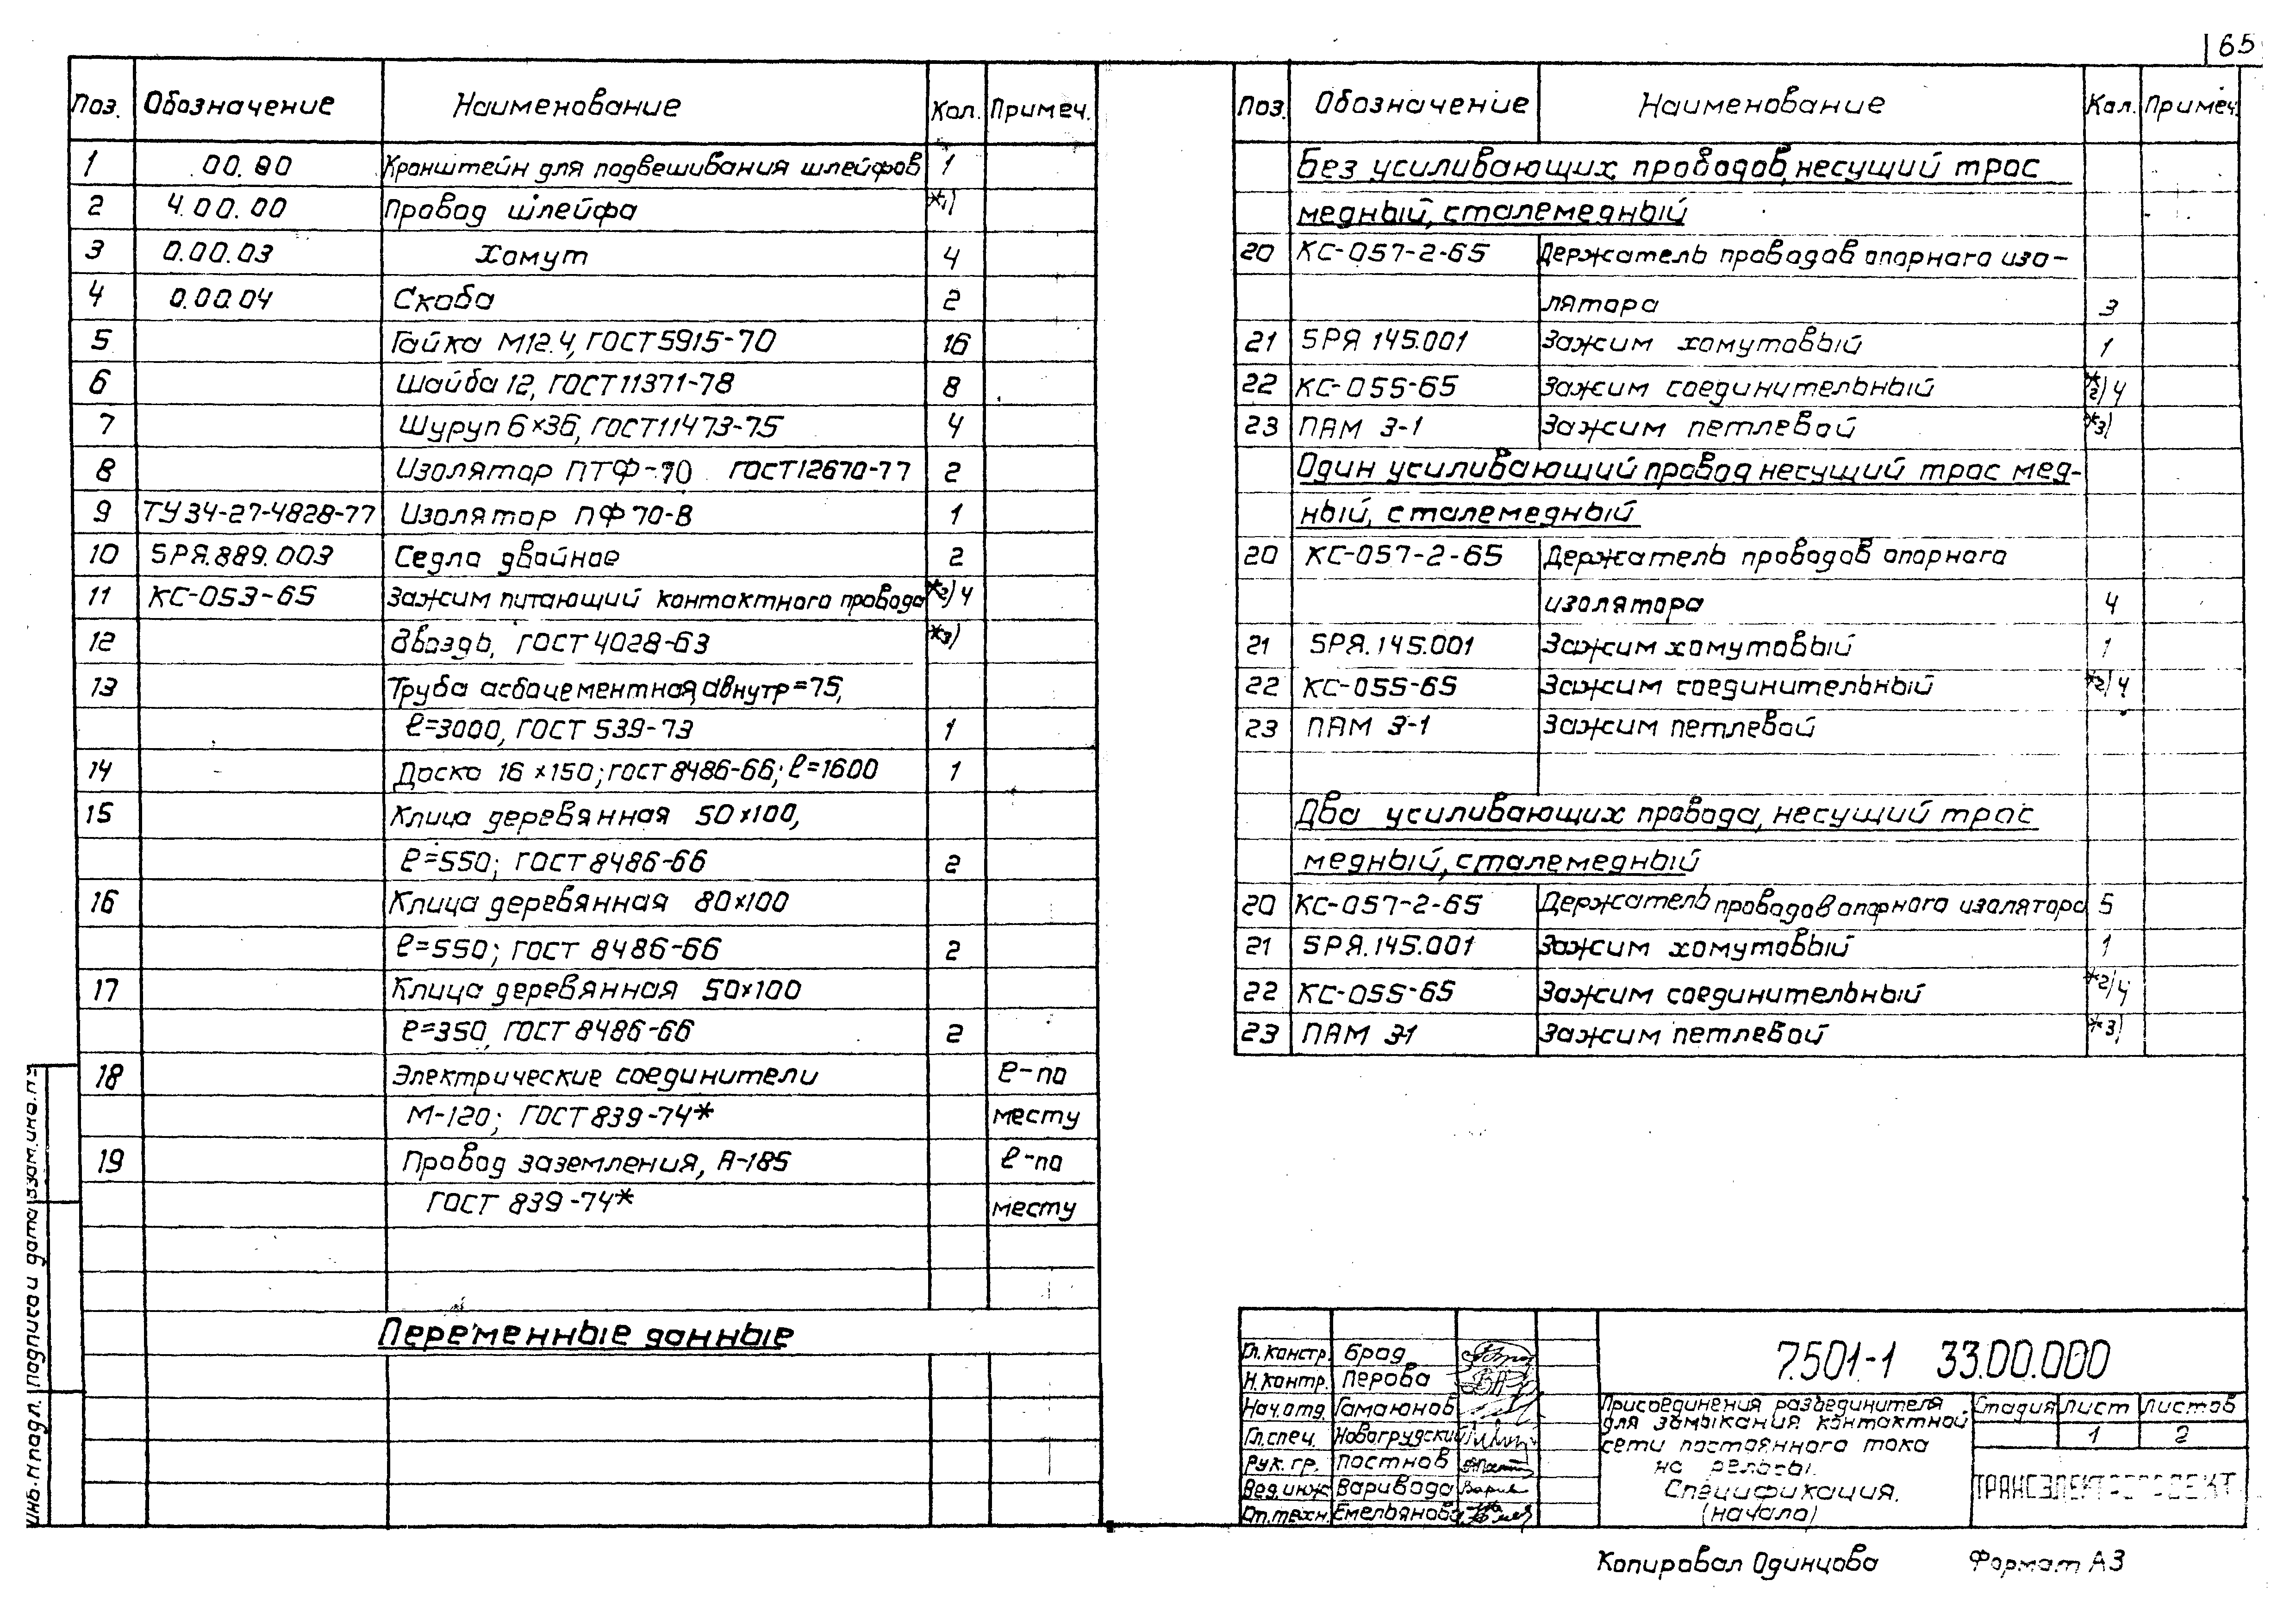 65
Поз. Обозначение Наименование Кол. Примеч.
1 .00.80 Кронштейн для подвешивания шлейфов 1
2 4.00.00 Провод шлейфа *1)
3 0.00.03 Хомут 4
4 0.00.04 Скоба 2
5 Гайка М12.4, ГОСТ 5915-70 16
6 Шайба 12, ГОСТ 11371-78 8
7 Шуруп 6×36, ГОСТ 11473-75 4
8 Изолятор ПТФ-70 ГОСТ 12670-77 2
9 ТУ 34-27-4828-77 Изолятор ПФ 70-В 1
10 5РЯ.889.003 Седло двойное 2
11 КС-053-65 Зажим питающий контактного провода *2) 4
12 Гвоздь, ГОСТ 4028-63 *3)
13 Труба асбоцементная, dвнутр=75,
ℓ=3000, ГОСТ 539-73 1
14 Доска 16×150; ГОСТ 8486-66; ℓ=1600 1
15 Клица деревянная 50×100,
ℓ=550; ГОСТ 8486-66 2
16 Клица деревянная 80×100
ℓ=550; ГОСТ 8486-66 2
17 Клица деревянная 50×100
ℓ=350, ГОСТ 8486-66 2
18 Электрические соединители ℓ-по
М-120; ГОСТ 839-74* месту
19 Провод заземления, А-185 ℓ-по
ГОСТ 839-74* месту
Переменные данные
Поз. Обозначение Наименование Кол. Примеч.
Без усиливающих проводов, несущий трос
медный, сталемедный
20 КС-057-2-65 Держатель проводов опорного изо-
лятора 3
21 5РЯ 145.001 Зажим хомутовый 1
22 КС-055-65 Зажим соединительный *2) 4
23 ПАМ 3-1 Зажим петлевой *3)
Один усиливающий провод несущий трос мед-
ный, сталемедный
20 КС-057-2-65 Держатель проводов опорного
изолятора 4
21 5РЯ.145.001 Зажим хомутовый 1
22 КС-055-65 Зажим соединительный *2) 4
23 ПАМ 3-1 Зажим петлевой
Два усиливающих провода, несущий трос
медный, сталемедный
20 КС-057-2-65 Держатель проводов опорного изолятора 5
21 5РЯ.145.001 Зажим хомутовый 1
22 КС-055-65 Зажим соединительный *2) 4
23 ПАМ 3-1 Зажим петлевой *3)
Инв.№подл. Подпись и дата Взам.инв.№
Гл.констр. Брод
Н.контр. Перова
Нач.отд. Гамаюнов
Гл.спец. Новогрудский
Рук.гр. Постнов
Вед.инж Варивода
Ст.техн. Емельянова
7.501-1 33.00.000
Присоединения разъединителя
для замыкания контактной
сети постоянного тока
на рельсы.
Спецификация.
(начало)
Стадия Лист Листов
1 2
ТРАНСЭЛЕКТРОПРОЕКТ
Копировал Одинцова Формат А3